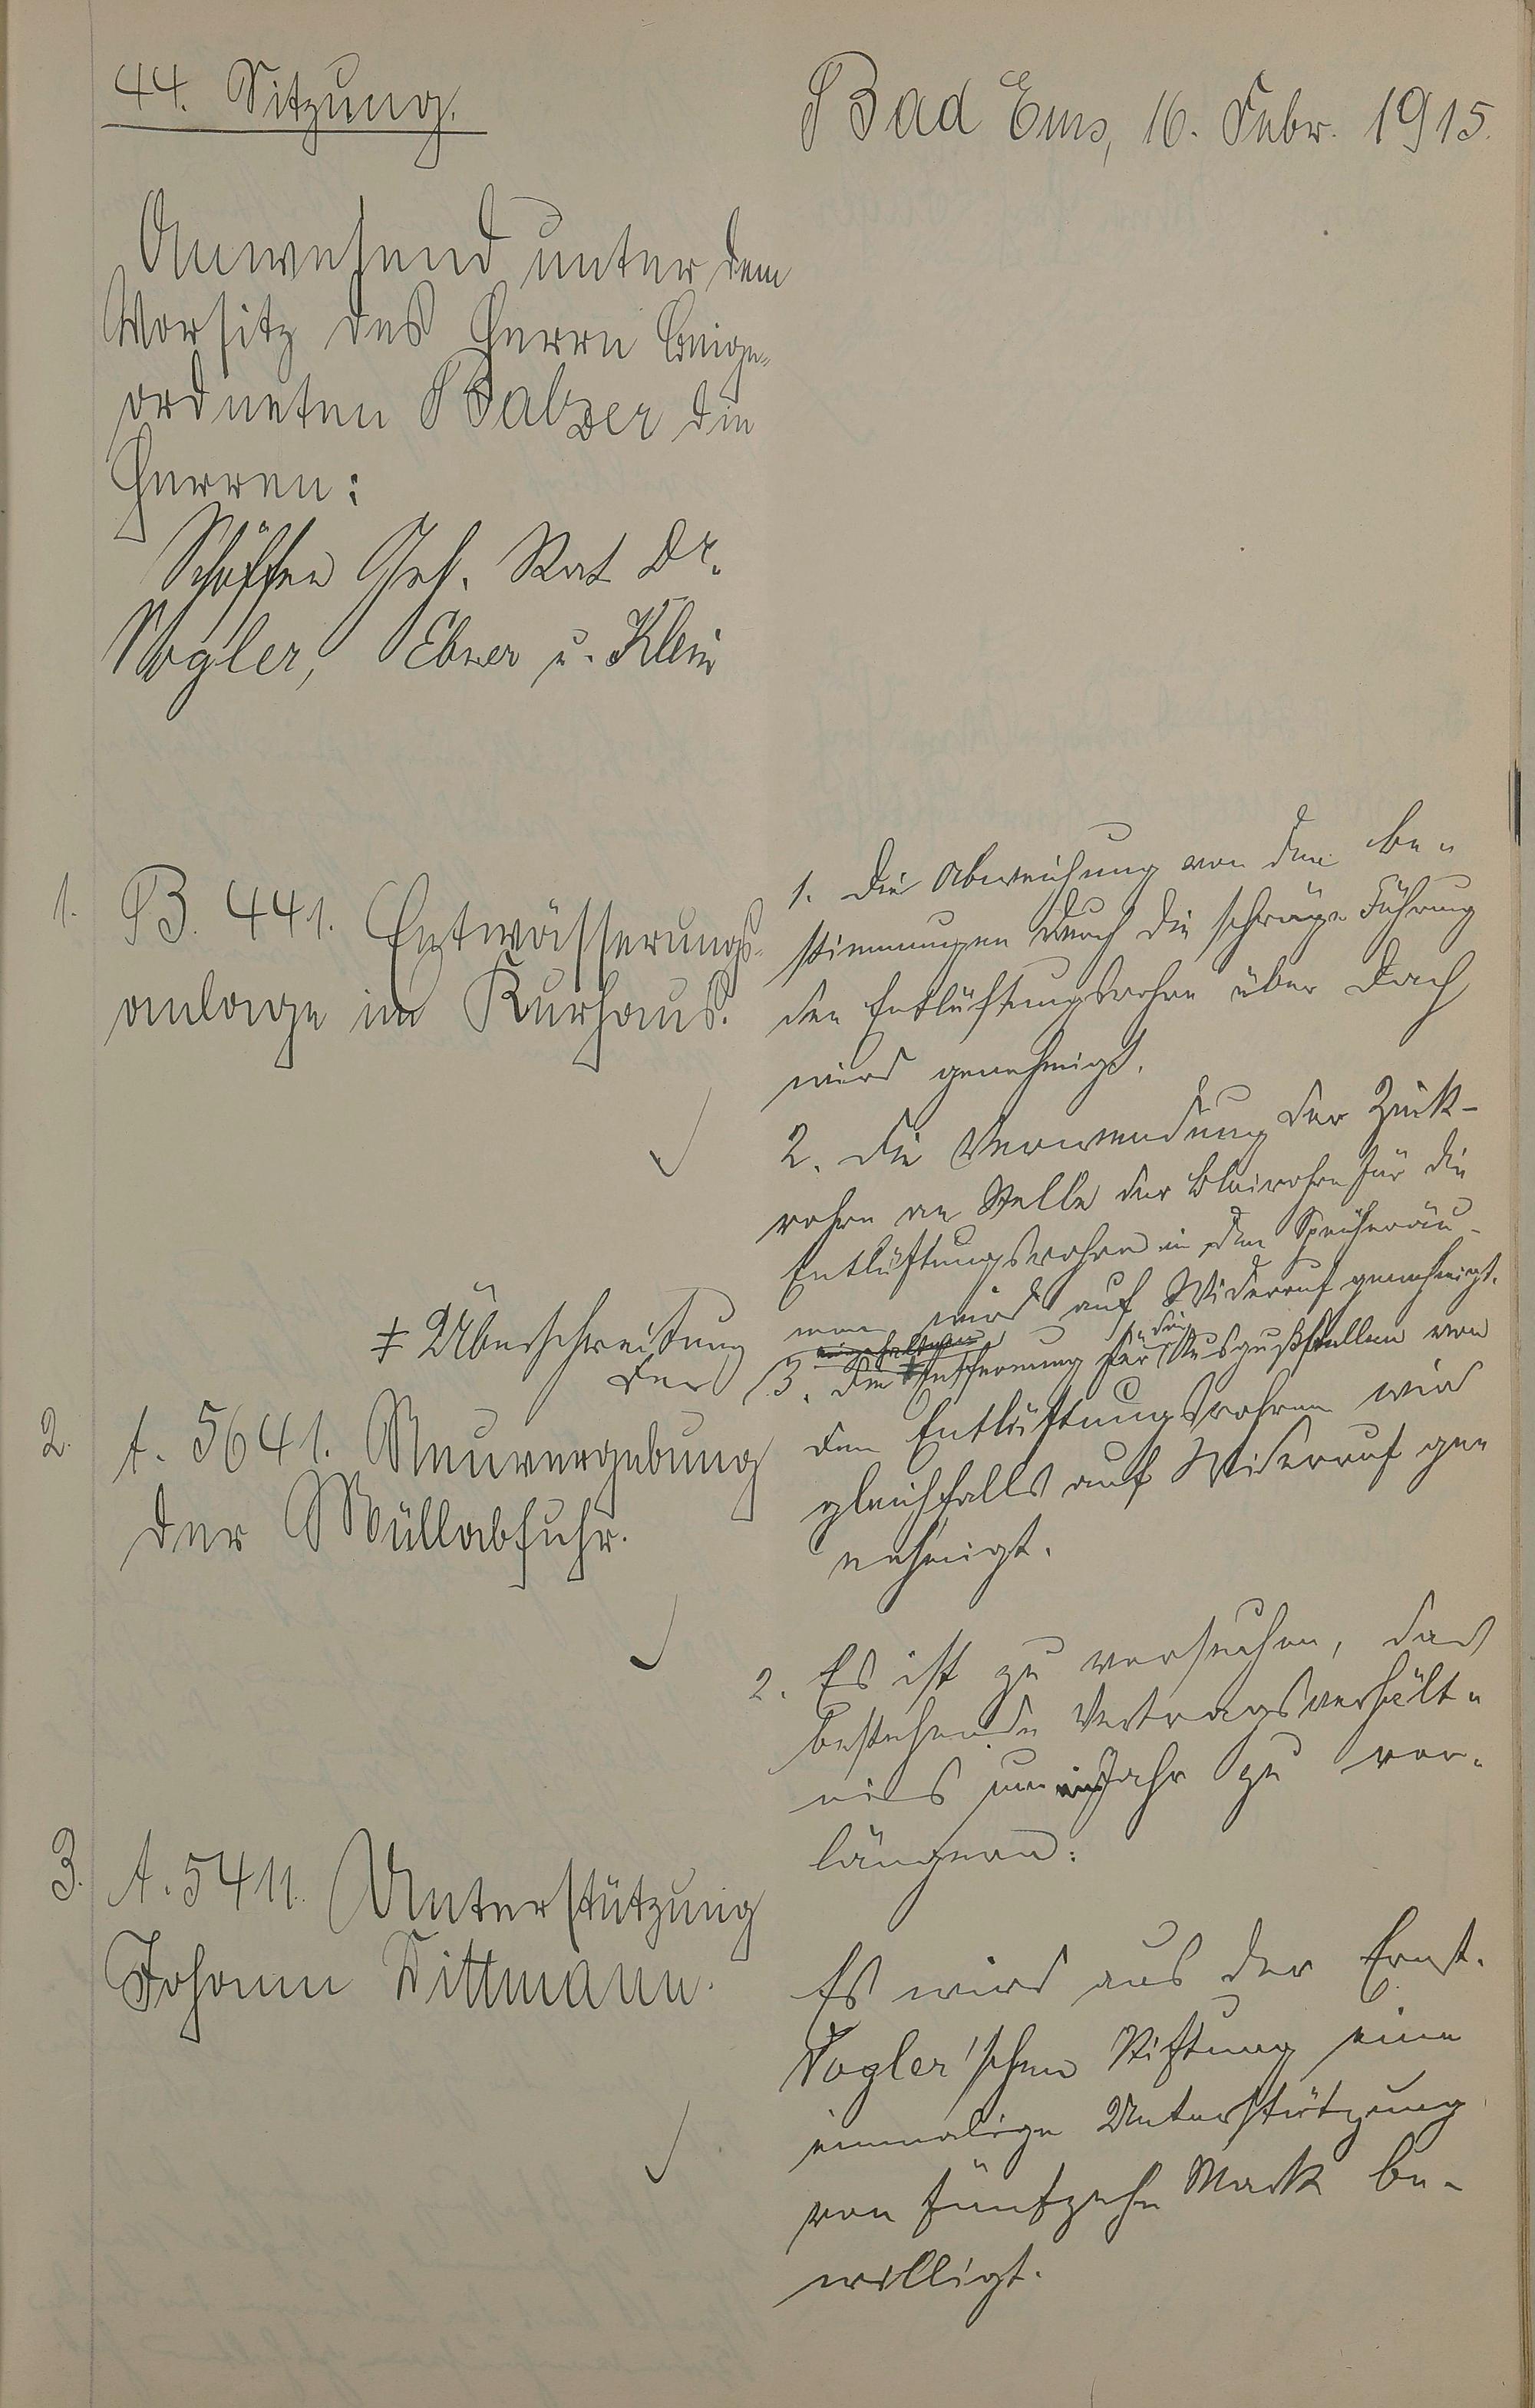 44. Sitzung.
Bad Ems, 16. Febr. 1915.
Anwesend unter dem
Vorsitz des Herrn Beige-
ordneten Balzer die
Herren:
Schöffen Geh. Rat Dr.
Vogler, Ebner u. Klein
1. B. 441. Entwässerungs-
anlage im Kurhaus.
1. Die Abweichung von den Be-
stimmungen durch die schräge Führung
der Entlüftungsrohre über Dach
wird genehmigt.
2. Die Verwendung der Zink-
rohre an Stelle der Bleirohre für die
Entlüftungsrohre in den
men wird auf Widerruf genehmigt.
3. Die ‡ Entfernung für die Ausgußstellen von
den Entlüftungsrohren wird
gleichfalls auf Widerruf ge-
nehmigt.
‡ Überschreitung
der
2. A. 5641. Neuvergebung
der Müllabfuhr.
2. Es ist zu versuchen, das
bestehende Vertragsverhält-
nis um ein Jahr zu ver-
längern.
3. A. 5411. Unterstützung
Johann Dittmann.
Es wird aus der Ernst-
Vogler'schen Stiftung eine
einmalige Unterstützung
von fünfzehn Mark be-
willigt.